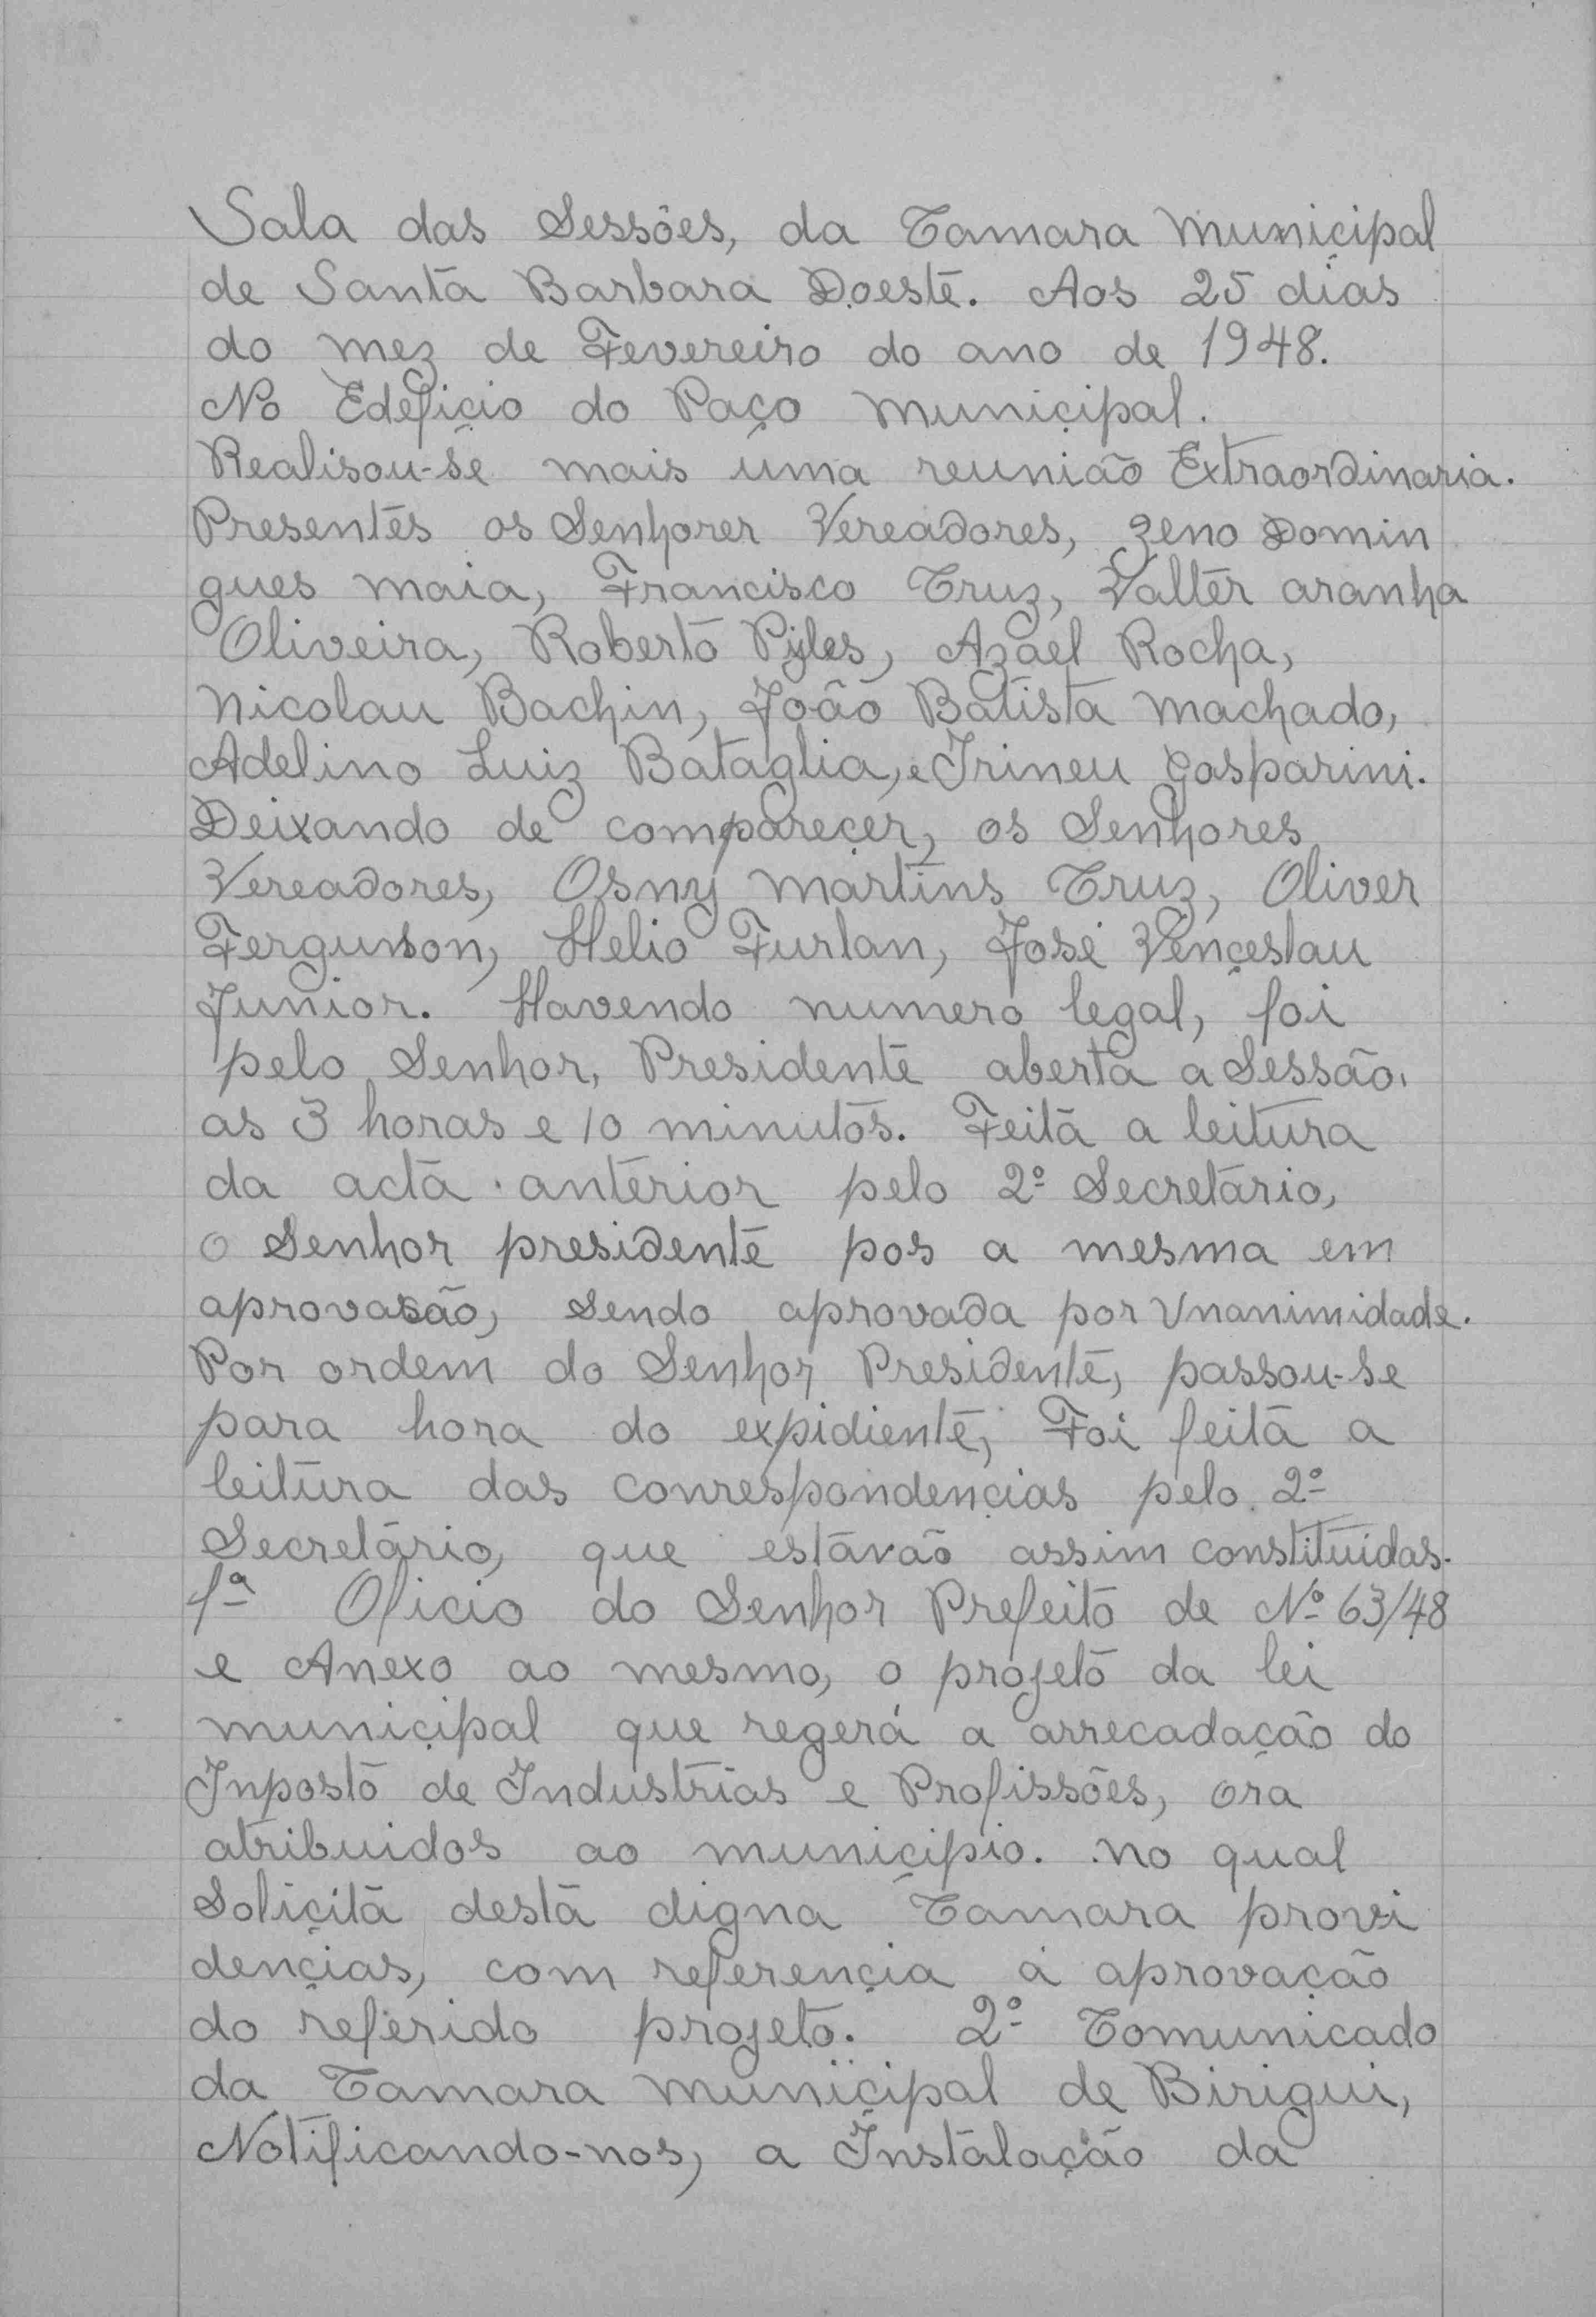 Sala das Sessões, da Camara Municipal
de Santa Barbara Doeste. Aos 25 dias
do mez de Fevereiro do ano de 1948.
No Edeficio do Paço Municipal.
Realisou-se mais uma reunião Extraordinaria.
Presentes os Senhorer Vereadores, Zeno Domin
gues Maia, Francisco Cruz, Valter Aranha
Oliveira, Roberto Pyles, Azael Rocha,
Nicolau Bachin, João Batista Machado,
Adelino Luiz Bataglia, e Irineu Gasparini.
Deixando de compareçer, os Senhores
Vereadores, Osny Martins Cruz, Oliver
Ferguson, Helio Furlan, José Vençeslau
Junior. Havendo numero legal, foi
pelo Senhor, Presidente aberta a Sessão,
as 3 horas e 10 minutos. Feita a leitura
da acta anterior pelo 2º Secretário,
o Senhor presidente pos a mesma em
aprovasão, Sendo aprovada por Unanimidade.
Por ordem do Senhor Presidente, passou-se
para hora do expidiente, Foi feita a
leitura das conrespondençias pelo 2º
Secretário, que estavão assim constituidas.
1ª Oficio do Senhor Prefeito de Nº 63/48
e Anexo ao mesmo, o projeto da lei
muniçipal que regerá a arrecadação do
Inposto de Industrias e Profissões, ora
atribuidos ao muniçipio. no qual
Soliçita desta digna Camara provi
dençias, com referençia á aprovação
do referido projeto. 2º Comunicado
da Camara Muniçipal de Birigui,
Notificando-nos, a Instalação da